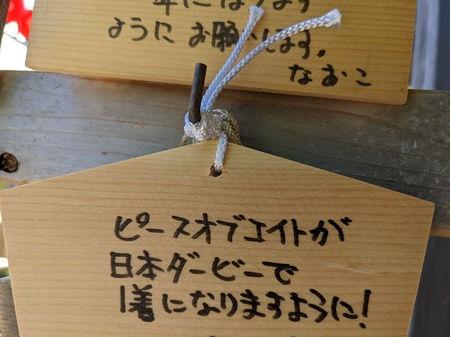 年になります
ようにお願いします。
なおこ
ピースオブエイトが
日本ダービーで
1着になりますように!